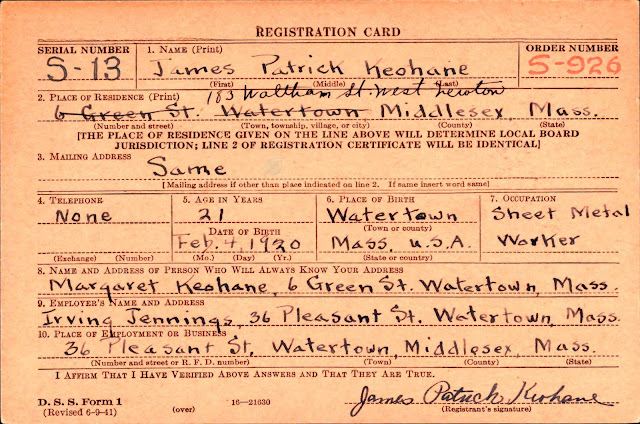 REGISTRATION CARD
SERIAL NUMBER 1. NAME (Print) ORDER NUMBER
S-13 James Patrick Keohane S-926
(First) (Middle) (Last)
183 Waltham St. West Newton
2. PLACE OF RESIDENCE (Print)
6 Green St. Watertown Middlesex, Mass.
(Number and street) (Town, township, village, or city) (County) (State)
[THE PLACE OF RESIDENCE GIVEN ON THE LINE ABOVE WILL DETERMINE LOCAL BOARD
JURISDICTION; LINE 2 OF REGISTRATION CERTIFICATE WILL BE IDENTICAL]
3. MAILING ADDRESS
Same
[Mailing address if other than place indicated on line 2. If same insert word same]
4. TELEPHONE 5. AGE IN YEARS 6. PLACE OF BIRTH 7. OCCUPATION
None 21 Watertown Sheet Metal
DATE OF BIRTH (Town or county)
Feb. 4, 1920 Mass. U.S.A. Worker
(Exchange) (Number) (Mo.) (Day) (Yr.) (State or country)
8. NAME AND ADDRESS OF PERSON WHO WILL ALWAYS KNOW YOUR ADDRESS
Margaret Keohane, 6 Green St. Watertown, Mass.
9. EMPLOYER'S NAME AND ADDRESS
Irving Jennings, 36 Pleasant St. Watertown, Mass.
10. PLACE OF EMPLOYMENT OR BUSINESS
36 Pleasant St. Watertown, Middlesex, Mass.
(Number and street or R. F. D. number) (Town) (County) (State)
I AFFIRM THAT I HAVE VERIFIED ABOVE ANSWERS AND THAT THEY ARE TRUE.
James Patrick Keohane
D. S. S. Form 1
(Revised 6-9-41) (over) 16—21630 (Registrant's signature)